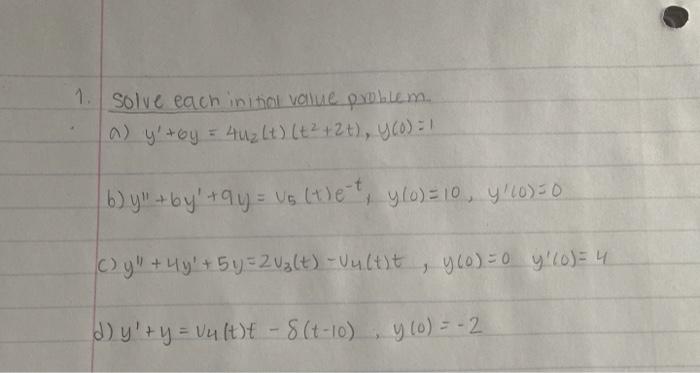 1. Solve each initial value problem.
a) y'+6y = 4u₂(t)(t²+2t), y(0)=1
b) y''+6y'+9y = u₅(t)e⁻ᵗ, y(0)=10, y'(0)=0
c) y''+4y'+5y=2u₃(t)-u₄(t)t, y(0)=0 y'(0)=4
d) y'+y = u₄(t)t - δ(t-10), y(0) = -2